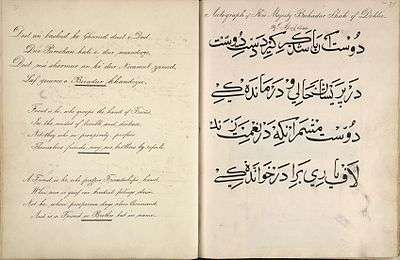 Dost an bashud ke Geerud dust e Dost
Dur Pureshan hale o dur mandugee,
Dost an ke dur Neamut zunud,
Laf Biradur khandugee.
Friend is he, who grasps the hand of Friend
In the midst of trouble and distress;
Not they who in prosperity profess
Themselves friends, nay, even brothers by repute.
A Friend is he, who proffers Friendship's hand,
When woe or grief our kindred feelings share;
Not he, where prosperous days allow Command,
And is a Friend or Brother but in name.
Autograph of His Majesty Bahadur Shah of Dehlie.
دوست آن باشد که گیرد دست دوست
در پریشان حالی و درماندگی
دوست مشمار آنکه در نعمت زند
لاف یاری و برادر خواندگی